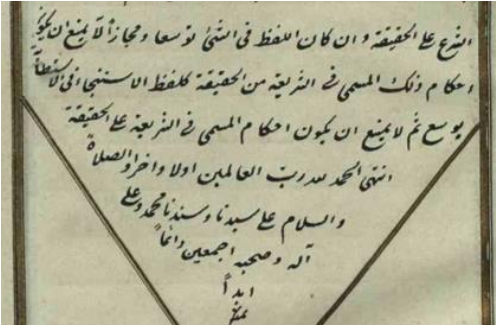 الشرع على الحقيقة وان كان اللفظ فى الشئ توسعا ومجازا لا يمنع ان يكون
احكام ذلك المسمى فى الشريعة من الحقيقة كلفظ الاستنجا فى الاستطابة
يوسع ثم لا يمنع ان يكون احكام المسمى فى الشريعة على الحقيقة
انتهى الحمد لله رب العالمين اولا واخرا والصلاة
والسلام على سيدنا وسندنا محمد وعلى
آله وصحبه اجمعين دائما
ابدا
تمت